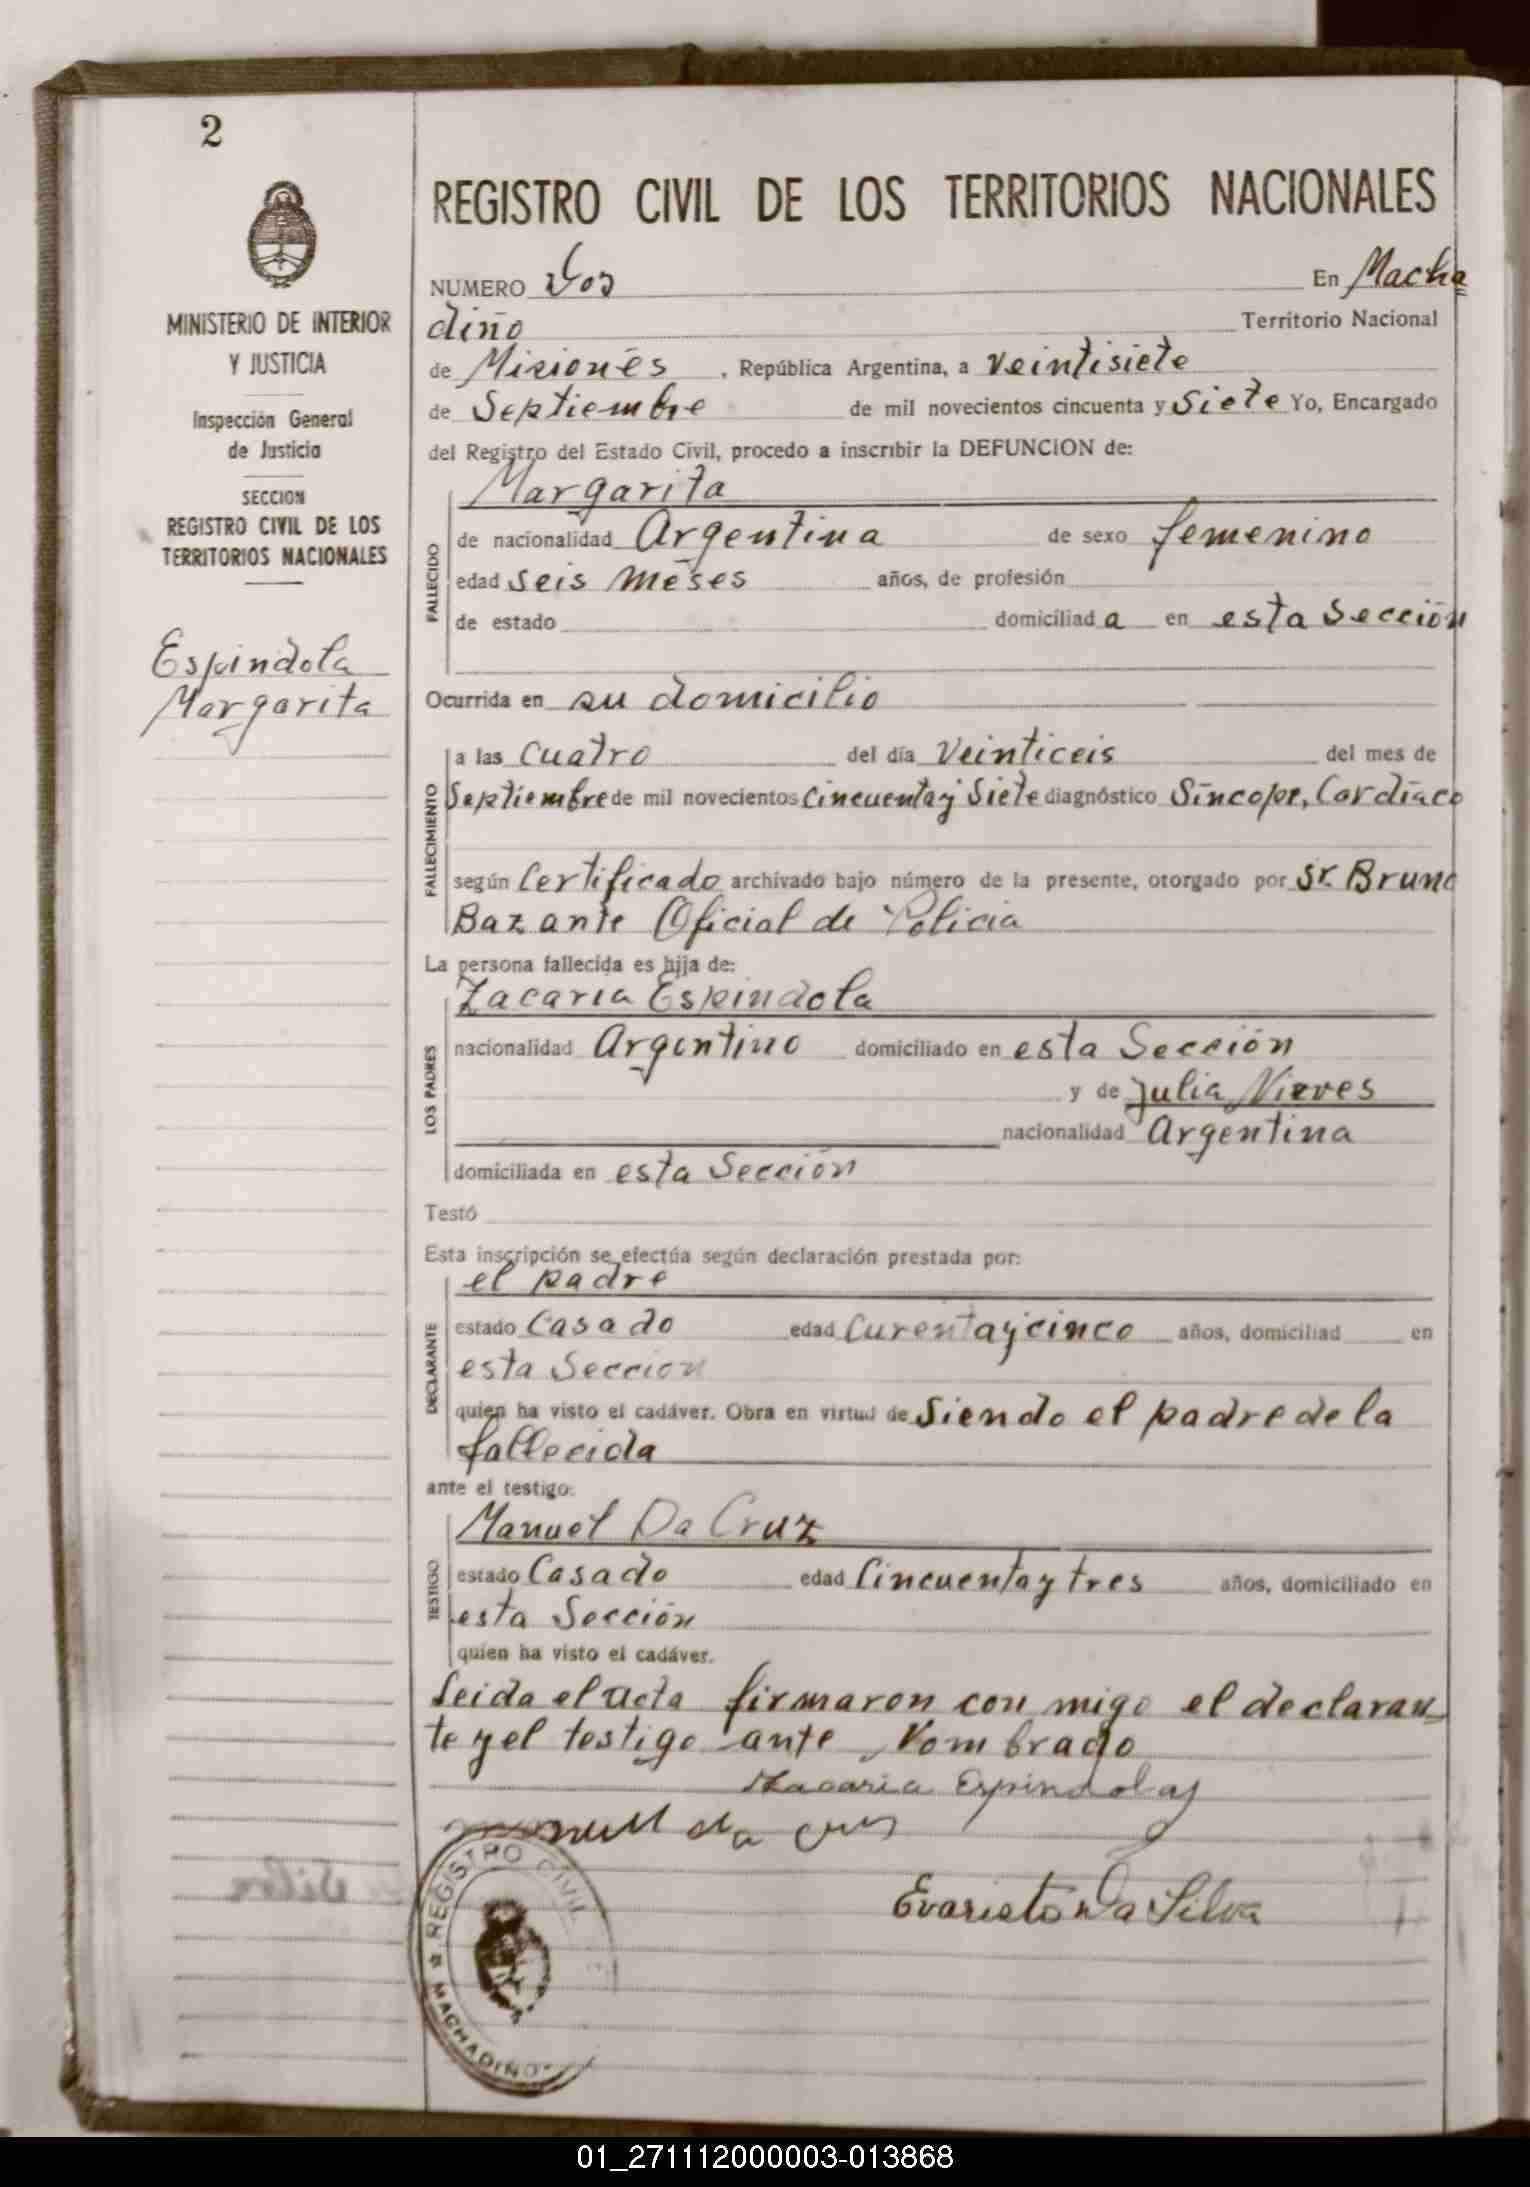 2
MINISTERIO DE INTERIOR
Y JUSTICIA
Inspección General
de Justicia
SECCION
REGISTRO CIVIL DE LOS
TERRITORIOS NACIONALES
Espindola
Margarita
REGISTRO CIVIL DE LOS TERRITORIOS NACIONALES
NUMERO Dos En Macha
diño Territorio Nacional
de Misiones, República Argentina, a veintisiete
de Septiembre de mil novecientos cincuenta y Siete Yo, Encargado
del Registro del Estado Civil, procedo a inscribir la DEFUNCION de:
Margarita
FALLECIDO
de nacionalidad Argentina de sexo femenino
edad seis meses años, de profesión
de estado domiciliad a en esta Sección
Ocurrida en su domicilio
FALLECIMIENTO
a las cuatro del día Veinticeis del mes de
Septiembre de mil novecientos Cincuenta y Siete diagnóstico Síncope, Cardíaco
según Certificado archivado bajo número de la presente, otorgado por Sr. Bruno
Bazante Oficial de Policia
La persona fallecida es hija de:
LOS PADRES
Zacaria Espindola
nacionalidad Argentino domiciliado en esta Sección
y de Julia Nieves
nacionalidad Argentina
domiciliada en esta Sección
Testó
Esta inscripción se efectúa según declaración prestada por:
DECLARANTE
el padre
estado Casado edad Curenta y cinco años, domiciliad en
esta Seccion
quien ha visto el cadáver. Obra en virtud de Siendo el padre de la
fallecida
ante el testigo:
TESTIGO
Manuel Da Cruz
estado Casado edad Cincuenta y tres años, domiciliado en
esta Sección
quien ha visto el cadáver.
Leida el acta firmaron con migo el declaran_
te y el testigo ante Nombrado
Zacaria Espindola
da cruz
REGISTRO CIVIL
MACHADIÑO
Evaristo Da Silva
01_271112000003-013868